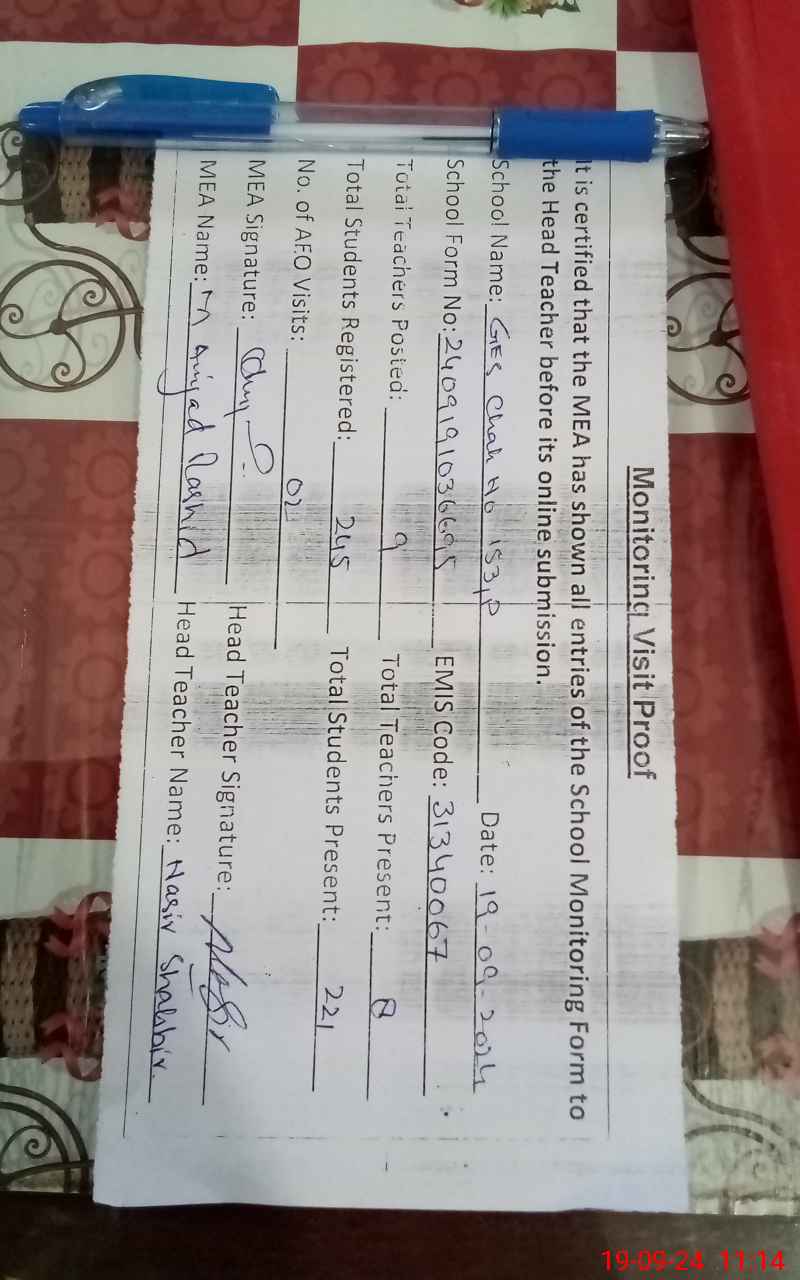 Monitoring Visit Proof
It is certified that the MEA has shown all entries of the School Monitoring Form to
the Head Teacher before its online submission.
School Name: GES Chak No 153,P Date: 19-09-2024
School Form No: 24091910366915 EMIS Code: 31340067
Total Teachers Posted: 9 Total Teachers Present: 8
Total Students Registered: 245 Total Students Present: 221
No. of AEO Visits: 02
MEA Signature: Head Teacher Signature:
MEA Name: M Amjad Rashid Head Teacher Name: Nasir Shabbir.
19-09-24 11:14